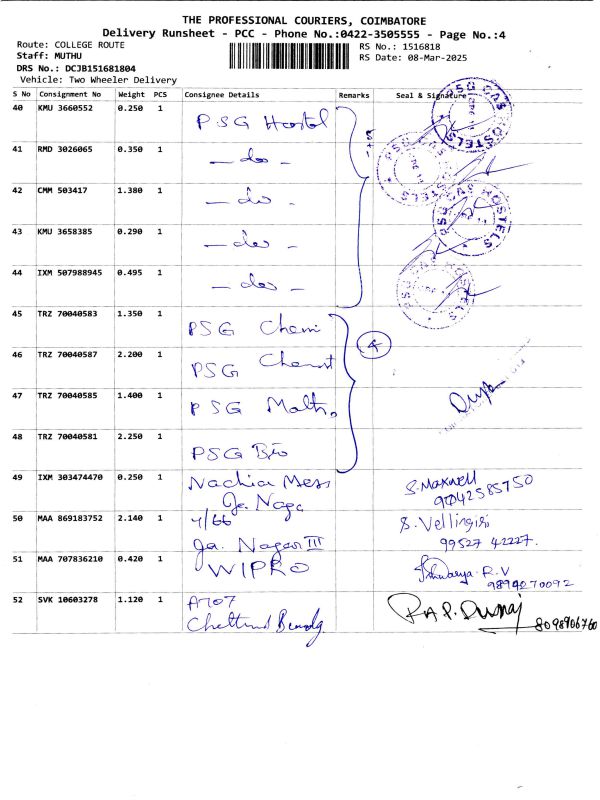 THE PROFESSIONAL COURIERS, COIMBATORE
Delivery Runsheet - PCC - Phone No.:0422-3505555 - Page No.:4
Route: COLLEGE ROUTE
Staff: MUTHU
DRS No.: DCJB151681804
Vehicle: Two Wheeler Delivery
RS No.: 1516818
RS Date: 08-Mar-2025
S No Consignment No Weight PCS Consignee Details Remarks Seal & Signature
40 KMU 3660552 0.250 1 PSG Hostel
41 RMD 3026065 0.350 1 - do -
42 CMM 503417 1.380 1 - do -
43 KMU 3658385 0.290 1 - do -
44 IXM 507988945 0.495 1 - do -
PSG CAS HOSTELS
PSG CAS HOSTELS
PSG CAS HOSTELS
PSG CAS HOSTELS
45 TRZ 70040583 1.350 1 PSG Chemi
4
46 TRZ 70040587 2.200 1 PSG Chemist
47 TRZ 70040585 1.400 1 PSG Maths
48 TRZ 70040581 2.250 1 PSG Bio
49 IXM 303474470 0.250 1 Nachiar Mess S. Maxwell
Ja. Naga 9042585750
50 MAA 869183752 2.140 1 4/66 S. Vellingiri
Ja. Nagar III 99527 42227.
51 MAA 707836210 0.420 1 WIPRO R.V
9894270092
52 SVK 10603278 1.120 1 A707
8098906760